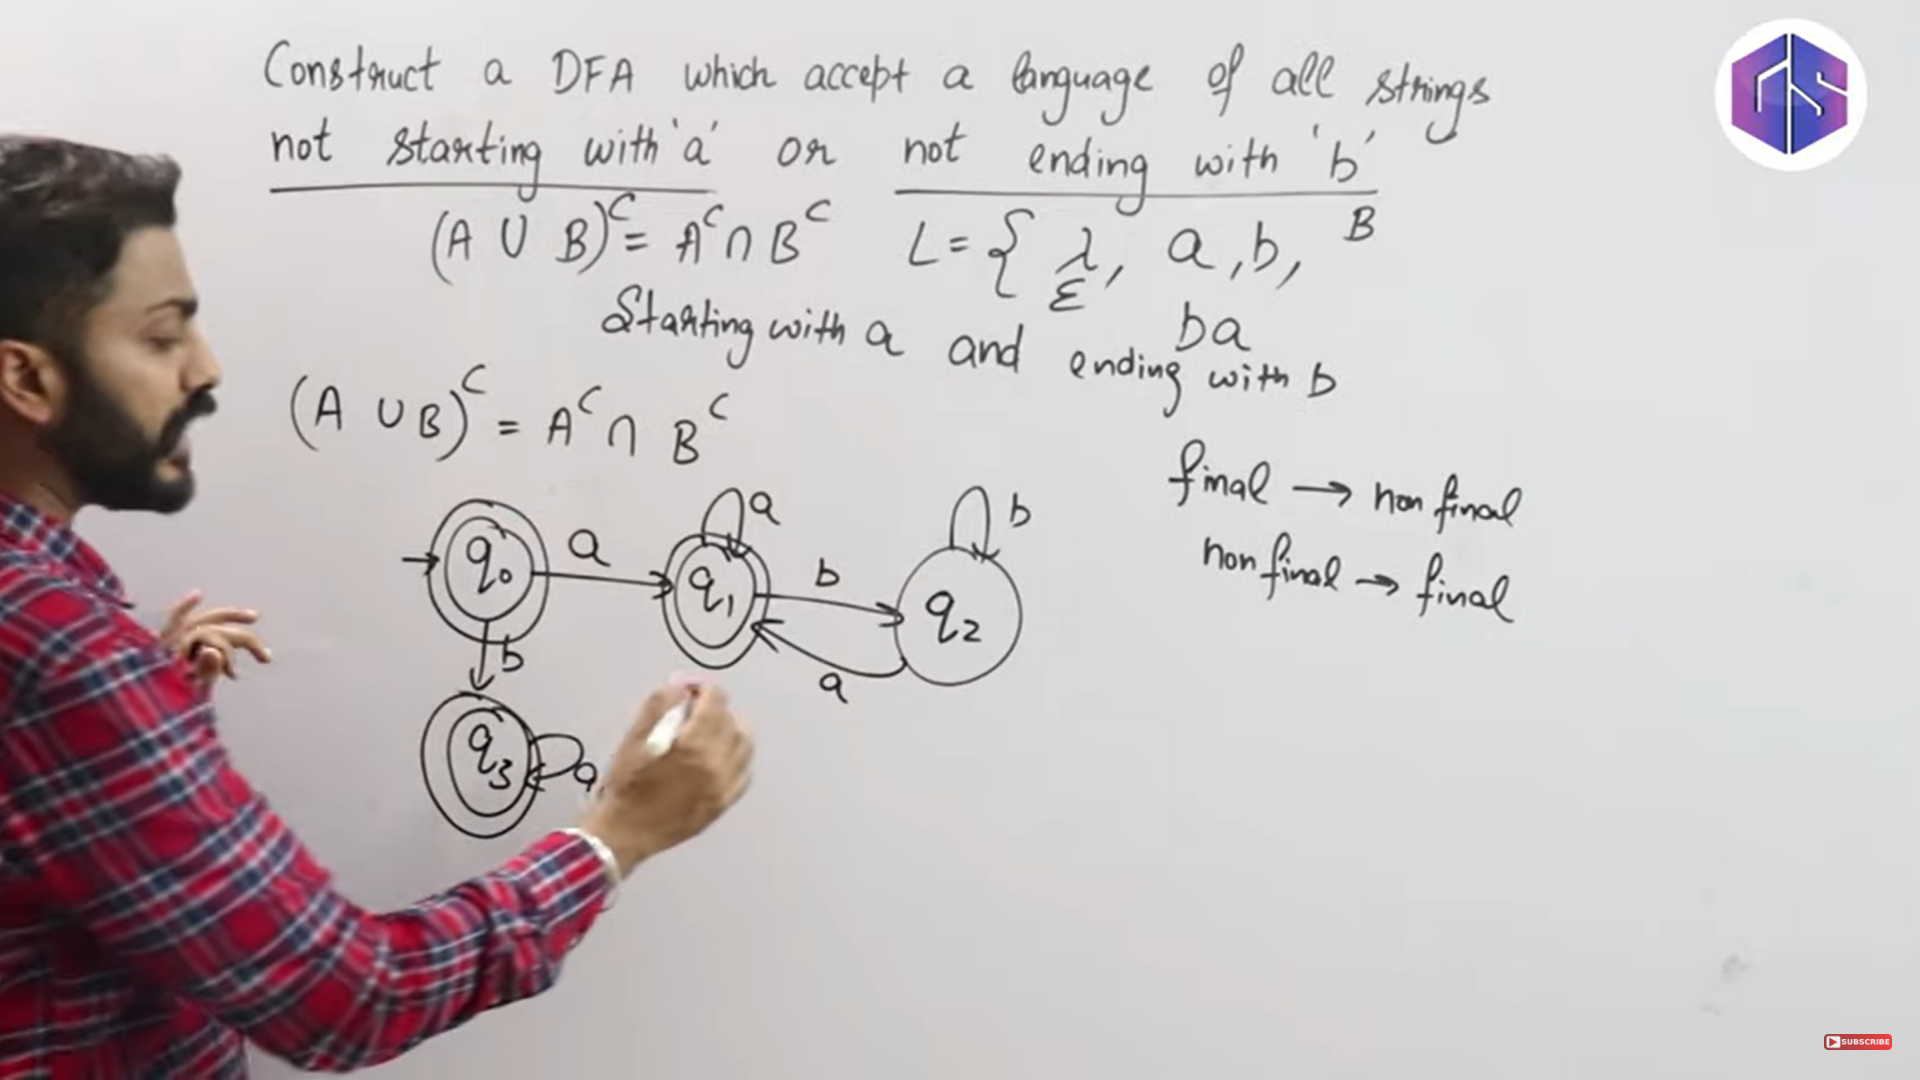 Construct a DFA which accept a language of all strings
not starting with 'a' or not ending with 'b'
(A ∪ B)ᶜ = Aᶜ ∩ Bᶜ L = { λ, a, b, B
ε ba
Starting with a and ending with b
(A ∪ B)ᶜ = Aᶜ ∩ Bᶜ
final → non final
non final → final
a b
q₀ a q₁ b q₂
b a
q₃ a,
GS
SUBSCRIBE